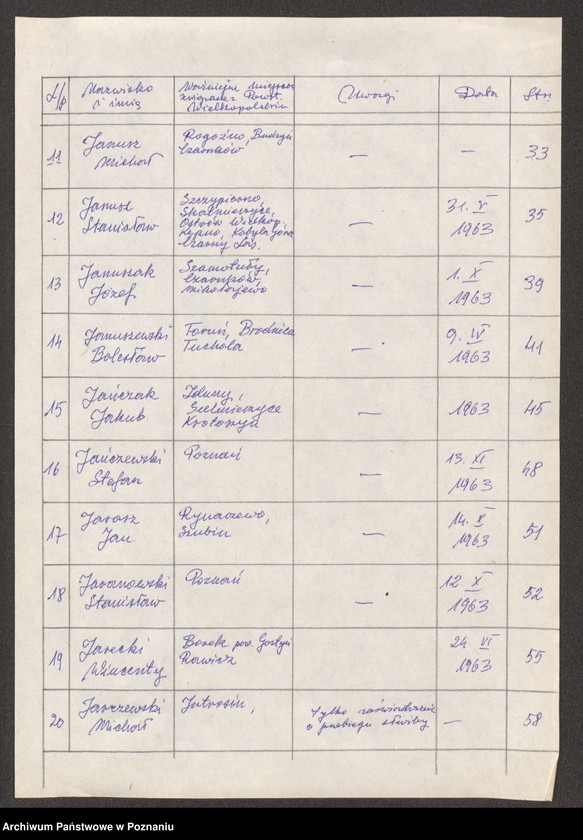 L/p Nazwisko i imię Ważniejsze miejsca związane z Powst. Wielkopolskim Uwagi Data Str.
11 Janusz Michał Rogoźno, Budzyń Czarnków, — — 33
12 Janusz Stanisław Szczypiorno, Skalmierzyce, Ostrów Wielkop. Kępno, Kobyla Góra Czarny Las. — 31. V 1963 35
13 Januszak Józef Szamotuły, Czarnków, Mikołajewo — 1. X 1963 39
14 Januszewski Bolesław Toruń, Brodnica Tuchola — 9. IV 1963 41
15 Jańczak Jakub Zduny, Sulmierzyce Krotoszyn — 1963 45
16 Jańczewski Stefan Poznań — 13. XI 1963 48
17 Jarosz Jan Rynarzewo, Szubin — 14. X 1963 51
18 Stanisław Poznań — 12 X 1963 52
19 Jarecki Wincenty Borek pow. Gostyń Rawicz 24. VI 1963 55
20 Jarczewski Michał Jutrosin, tylko zaświadczenie o przebiegu służby — 58
Archiwum Państwowe w Poznaniu